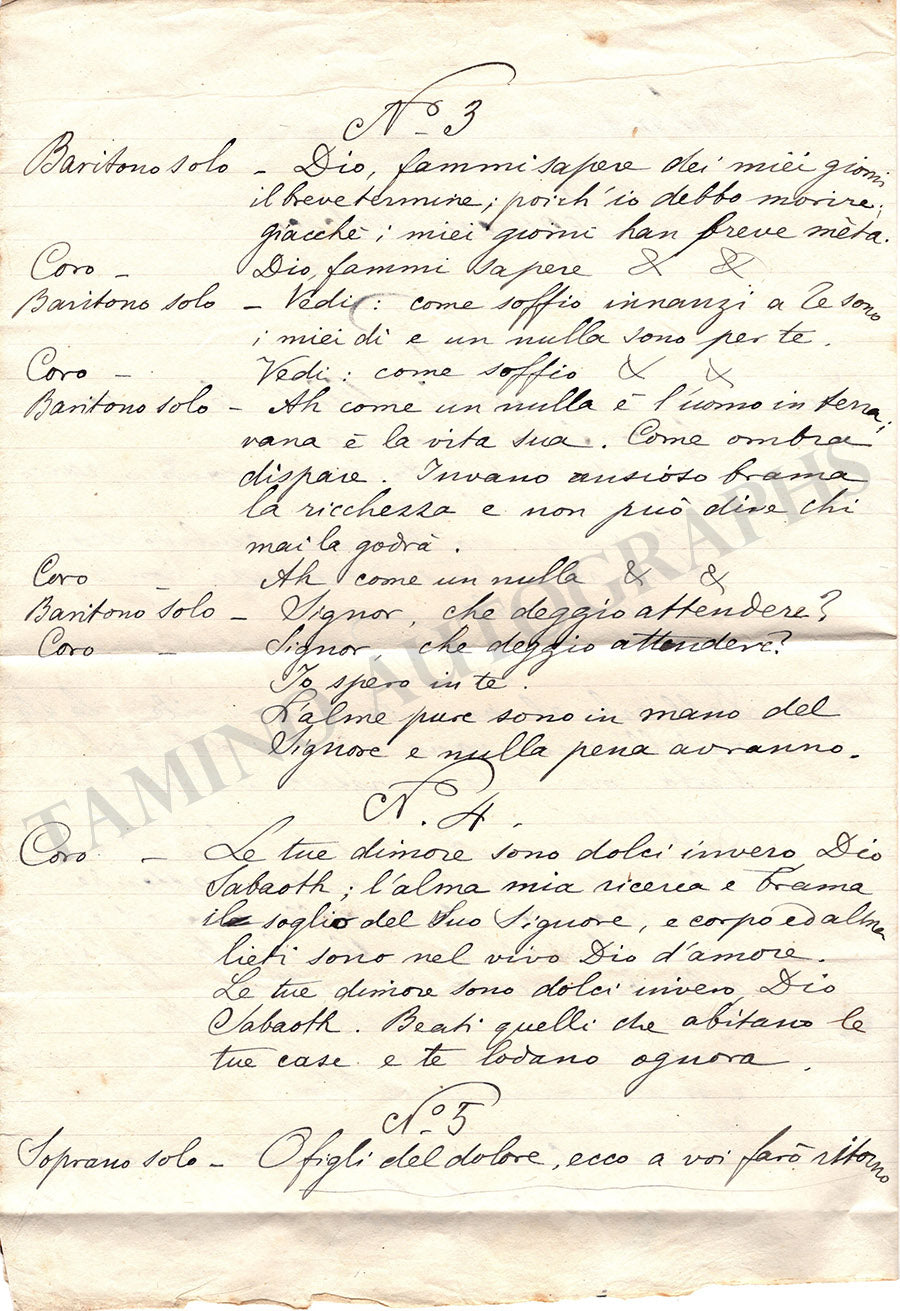 No 3
Baritono solo - Dio, fammi sapere dei miei giorni
il breve termine; poich'io debbo morire;
giacchè i miei giorni han breve mèta.
Coro - Dio, fammi sapere & &
Baritono solo - Vedi: come soffio innanzi a Te sono
i miei dì e un nulla sono per te.
Coro - Vedi: come soffio & &
Baritono solo - Ah come un nulla è l'uomo in terra;
vana è la vita sua. Come ombra
dispare. Invano ansioso brama
la ricchezza e non può dire chi
mai la godrà.
Coro - Ah come un nulla & &
Baritono solo - Signor, che deggio attendere?
Coro - Signor, che deggio attendere?
Io spero in te.
L'alme pure sono in mano del
Signore e nulla pena avranno.
N. 4.
Coro - Le tue dimore sono dolci invero, Dio
Sabaoth; l'alma mia ricerca e brama
il soglio del Suo Signore, e corpo ed alma
lieti sono nel vivo Dio d'amore.
Le tue dimore sono dolci invero, Dio
Sabaoth. Beati quelli che abitano le
tue case e te lodano ognora.
No 5
Soprano solo - O figli del dolore, ecco a voi farò ritorno
TAMINO AUTOGRAPHS